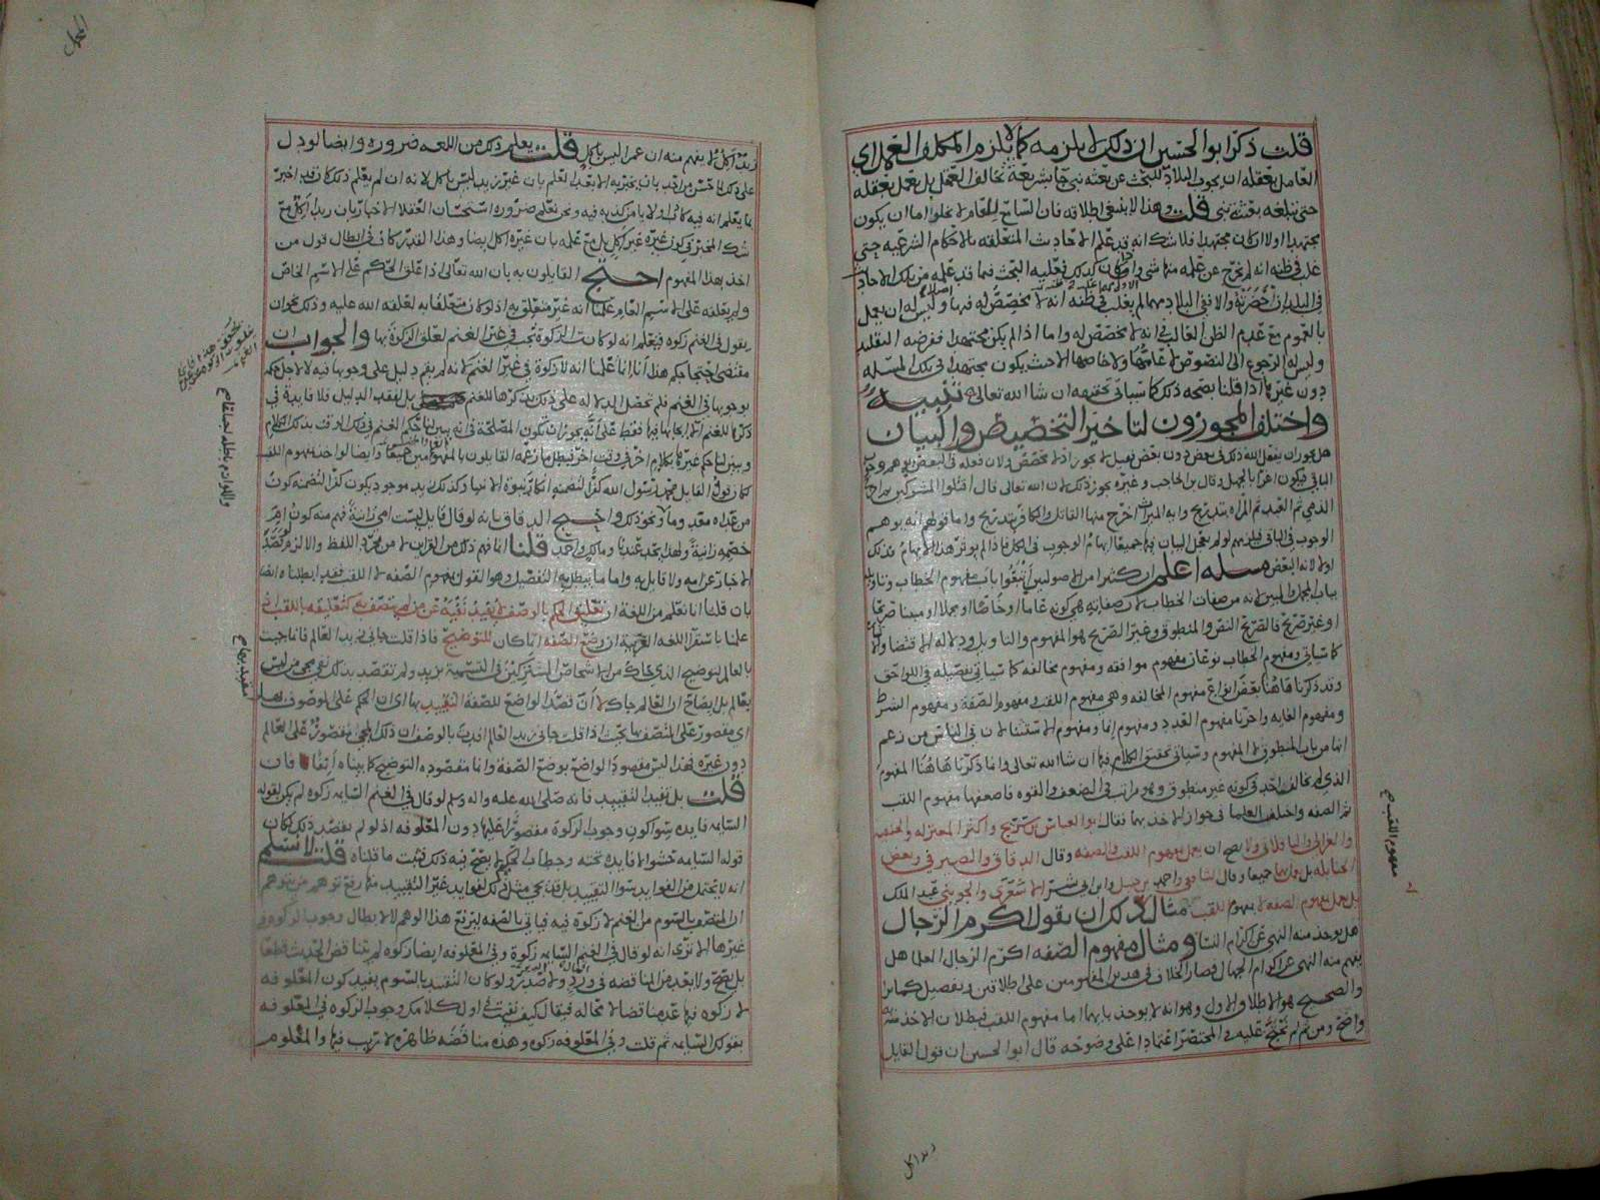 قلت ذكر ابو الحسين ان ذلك لا يلزمه كما لا يلزم المكلف العمل اي
العامل بعقله ان يجوب البلاد للبحث عن بعثة نبي جا بشريعة تخالف العمل بل يعمل بعقله
حتى تبلغه بعثة نبي قلت وهذا لا ينبغي اطلاقه فان السامع للعام لا يخلوا اما ان يكون
مجتهدا اولا ان كان مجتهدا فلا شك انه قد علم الاحاديث المتعلقه بالاحكام الشرعيه حتى
غلب في ظنه انه لم يخرج عن علمه منها شي واذا كان كذلك فعليه البحث فيما قد علمه من تلك الاحاديث
في البلد ان حضرته والا ففي البلاد مهما لم يغلب في ظنه انه لا مخصص له فيها وليس له ان يعمل
بالعموم مع عدم الظن الغالب في انه لا مخصص له واما اذا لم يكن مجتهدا ففرضه التقليد
وليس له الرجوع الى النصوص لا عامها ولا خاصها الا حيث يكون مجتهدا في تلك المسئله
دون غيرها اذا قلنا بصحه ذلك كما سياتي تحقيقه ان شا الله تعالى تنبيه
واختلف المجوزون لتاخير التخصيص والبيان
هل يجوز ان يفعل الله ذلك في بعض دون بعض فقيل لا يجوز اذ لا مخصص ولان فعله في البعض يوهم وجوب
الباقي فيكون اغرا بالجهل وقال بن الحاجب وغيره يجوز ذلك لان الله تعالى قال اقتلوا المشركين ثم اخرج
الذمي ثم العبد ثم المراه بتدريج وايه الميراث اخرج منها القاتل والكافر بتدريج واما قولهم انه يوهم
الوجوب في الباقي فيلزمهم لو لم يفعل البيان فيها جميعا ايهام الوجوب في الكل فاذا لم يوثر هذا الايهام فذلك
اولا لانه البعض مسله اعلم ان كثيرا من الاصوليين يتبعوا باب مفهوم الخطاب
بباب المجمل والمبين لانه من صفات الخطاب لان صفاته هي كونه عاما او خاصا او مجملا او مبينا صريحا
او غير صريح فالصريح النص والمنطوق وغير الصريح هو المفهوم
كما سياتي ومفهوم الخطاب نوعان مفهوم موافقه ومفهوم مخالفه كما سياتي تفصيله في اللواحق
وقد ذكرنا هاهنا بعض انواع مفهوم المخالفه وهي مفهوم اللقب ومفهوم الصفة ومفهوم الشرط
ومفهوم الغايه واخرنا مفهوم العدد ومفهوم انما ومفهوم الاستثنا لان في الناس من زعم
انها من باب المنطوق لا المفهوم وسياتي تحقيق الكلام فيها ان شا الله تعالى وانما ذكرنا هاهنا المفهوم
الذي لم يخالف احد في كونه غير منطوق وهو مراتب في الضعف والقوه فاضعفها مفهوم اللقب
ثم الصفه واختلف العلما في جواز الاخذ بها فقال ابو العباس بن سريج واكثر المعتزله والحنفيه
والغزالي والباقلاني ولا يصح ان يعمل بمفهوم اللقب والصفه وقال الدقاق والصيرفي وبعض
الحنابله بل يعمل بهما جميعا وقال الشافعي واحمد بن حنبل وابن ابي بشر الاشعري والجويني عبد الملك
بل يعمل بمفهوم الصفه لا بمفهوم اللقب مثال ذلك ان يقول اكرم الرجال
هل يوخذ منه النهي عن اكرام النسا ومثال مفهوم الصفه اكرم الرجال العلما هل
يفهم منه النهي عن اكرام الجهال فصار الخلاف في هذين المفهومين على اطلاقين وتفصيل كما ترا
والصحيح هو الاطلاق الاول وهو انه لا يوخذ بايهما اما مفهوم اللقب فبطلان الاخذ منه
واضح ومن ثم لم نحتج عليه في المختصر اعتمادا على وضوحه قال ابو الحسين ان قول القايل
مفهوم اللقب
زيد اكل
زيد اكل لا يفهم منه ان عمرا ليس باكل قلت يعلم ذلك من اللغه ضروره وايضا لو دل
على ذلك لما حسن من احد ان يخبر به الا بعد ان يعلم بان غير زيد ليس باكل لانه ان لم يعلم ذلك كان قد اخبر
بما يعلم انه فيه كاذب اولا يامن كذبه فيه ونحن نعلم ضروره استحسان العقلا الاخبار بان زيدا اكل مع
شك المخبر في كون غيره غير اكل بل مع علمه بان غيره اكل ايضا وهذا القدر كاف في ابطال قول من
اخذ بهذا المفهوم احتج القايلون به بان الله تعالى اذا علق الحكم على الاسم الخاص
ولم يعلقه على الاسم العام علمنا انه غير متعلق به اذ لو كان متعلقا به لعلقه الله عليه وذلك نحو ان
يقول في الغنم زكوه فيعلم انه لو كانت الزكوة تجب في غير الغنم لعلق الزكوة بها والجواب ان
مقتضى احتجاجكم هذا انا انما علمنا انه لا زكوة في غير الغنم لانه لم يقم دليل على وجوبها فيه لا لاجل حكمه
بوجوبها في الغنم فلم تحصل الدلاله على ذلك بذكرها للغنم بل لفقد الدليل فلا فايدة في
ذكرنا للغنم الا ايجابها فيها فقط على انه يجوز ان تكون المصلحة في انه يبين لنا حكم الغنم في ذلك الوقت بذلك الكلام
ويبين لنا حكم غيرها بكلام اخر في وقت اخر فبطل ما زعمه القايلون بالمفهومين جميعا وايضا لو اخذ بمفهوم اللقب
لكان قول القايل محمد رسول الله كفرا لتضمنه انكار نبوة الانبيا وكذلك زيد موجود يكون كفرا لتضمنه كون
من عداه معدوما ونحو ذلك واحتج الدقاق بانه لو قال قايل ليست امي زانية فهم منه كون ام
خصمه زانية ولهذا يحد عندنا ومالك واحمد قلنا انما فهم ذلك من القراين لا من مجرد اللفظ والا لزم
الاخبار عن امه ولا قايل به واما ما يبطل به التفصيل وهو القول بمفهوم الصفه لا اللقب فقد ابطلناه ايضا
بان قلنا انا نعلم من اللغه ان تعليق الحكم بالوصف لا يفيد نفيه عن من لم يتصف به كتعليقه باللقب
علمنا باستقرا اللغه العربيه ان وضع الصفه انما كان للتوضيح فاذا قلت جاني زيد العالم فانما جيت
بالعالم لتوضيح الذي جاك من الاشخاص المشتركين في التسمية بزيد ولم تقصد بذلك نفي مجي من ليس
بعالم بل ايضاح ان العالم جاك لا ان قصد الواضع للصفة التقييد بها اي ان الحكم على الموصوف بها
اي مقصور على المتصف بها بحيث اذا قلت جاني زيد العالم افدت بالوصف ان ذلك المجي مقصور على العالم
دون غيره فهذا ليس مقصود الواضع بوضع الصفة وانما مقصوده التوضيح كما بيناه انفا فان
قلت بل تفيد التقييد فانه صلى الله عليه واله وسلم لو قال في الغنم السايمه زكوه لم يكن لقوله
السايمه فايده سوا كون وجوب الزكوة مقصورا عليها دون المعلوفه اذ لو لم يقصد ذلك لكان
قوله السايمه حشوا لا فايده تحته وخطاب الحكيم لا يصح فيه ذلك فثبت ما قلناه قلت لا نسلم
انه لا يحتمل من الفوايد سوا التقييد بل قد يجي مثل ذلك لفوايد غير التقييد منها رفع توهم من يتوهم
ان المتصف بالسوم من الغنم لا زكوة فيه فياتي بالصفه ليرفع هذا الوهم لا لابطال وجوب الزكوه في
غيرها الا ترى انه لو قال في الغنم السايمه زكوة وفي المعلوفه ايضا زكوه لم يتناقض الحديث قطعا
بل يصح ولا يعد من المناقضه في ورد ولا صدر ولو كان التقييد بالسوم يفيد كون المعلوفه
لا زكوه فيها عد مناقضا لا محاله فيقال كيف نفيت في اول كلامك وجوب الزكوه في المعلوفه
بقولك السايمه ثم قلت وفي المعلوفه زكوه وهذه مناقضه ظاهره لا ريب فيها والمعلوم